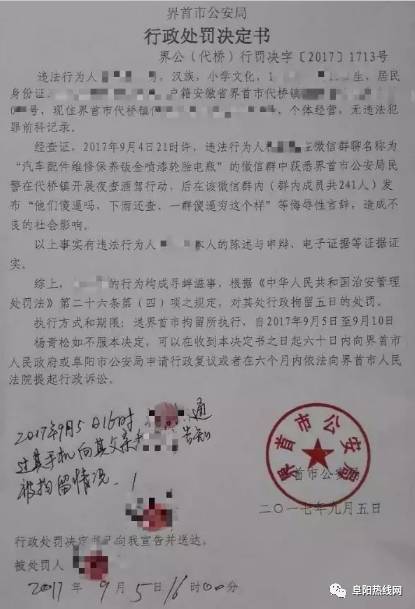 界首市公安局
行政处罚决定书
界公（代桥）行罚决字〔2017〕1713号
违法行为人 ，汉族，小学文化， 生，居民
身份证 户籍安徽省界首市代桥镇
0号，现住界首市代桥镇 ，个体经营，无违法犯
罪前科记录。
经查证，2017年9月4日21时许，违法行为人 微信群聊名称为
“汽车配件维修保养钣金喷漆轮胎电瓶”的微信群中获悉界首市公安局民
警在代桥镇开展夜查酒驾行动，后在该微信群内（群内成员共241人）发
布“他们傻逼吗，下雨还查，一群傻逼穷这个样”等侮辱性言辞，造成不
良的社会影响。
以上事实有违法行为人 本人的陈述与申辩、电子证据等证据证
实。
综上， 的行为构成寻衅滋事，根据《中华人民共和国治安管理
处罚法》第二十六条第（四）项之规定，对其处行政拘留五日的处罚。
执行方式和期限：送界首市拘留所执行，自2017年9月5日至9月10日
杨青松如不服本决定，可以在收到本决定书之日起六十日内向界首市
人民政府或阜阳市公安局申请行政复议或者在六个月内依法向界首市人民
法院提起行政诉讼。
2017年9月5日16时 通
过其手机向其父亲 告知
被拘留情况。
界首市公安局
首市公安局
二〇一七年九月五日
行政处罚决定书已向我宣告并送达。
被处罚人
2017年9月5日16时00分
阜阳热线网